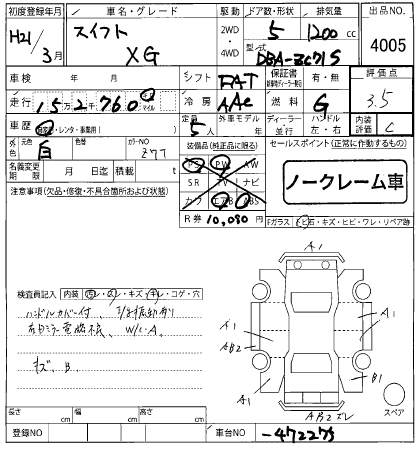 初度登録年月 車名・グレード 駆動 ドア数・形状 排気量 出品NO.
H21/3月 スイフト XG 2WD・4WD 5 1200cc 4005
型式 DBA-ZC71S
車検 年 月 シフト FAT 保証書(新車時ディーラー発行) 有・無 評価点
走行 152760 キロ・マイル 冷房 AAC 燃料 G 3.5
車歴 自家用・レンタ・事業用( ) 定員 5人 外車モデル ディーラー・並行 ハンドル 左・右 内装評価 C
外色 元色 白 色替 カラーNO Z7T
装備品(純正品に限る) セールスポイント(正常に作動するもの)
名義変更期限 月 日迄 積載 t
PS PW AW
SR TV ナビ
カワ エアB ABS
ノークレーム車
注意事項(欠品・修復・不具合箇所および状態)
R券 10,080円
Fガラス 飛石・キズ・ヒビ・ワレ・リペア跡
検査員記入 内装 汚レ・スレ・キズ・キレ・コゲ・穴
ハンドルカバー付
W/C.A.
キズ.B
A1
A1
A1
AB2
A1
B1
A1
AB2ズレ
スペア
長さ cm 幅 cm 高さ cm
登録NO 車台NO -472275